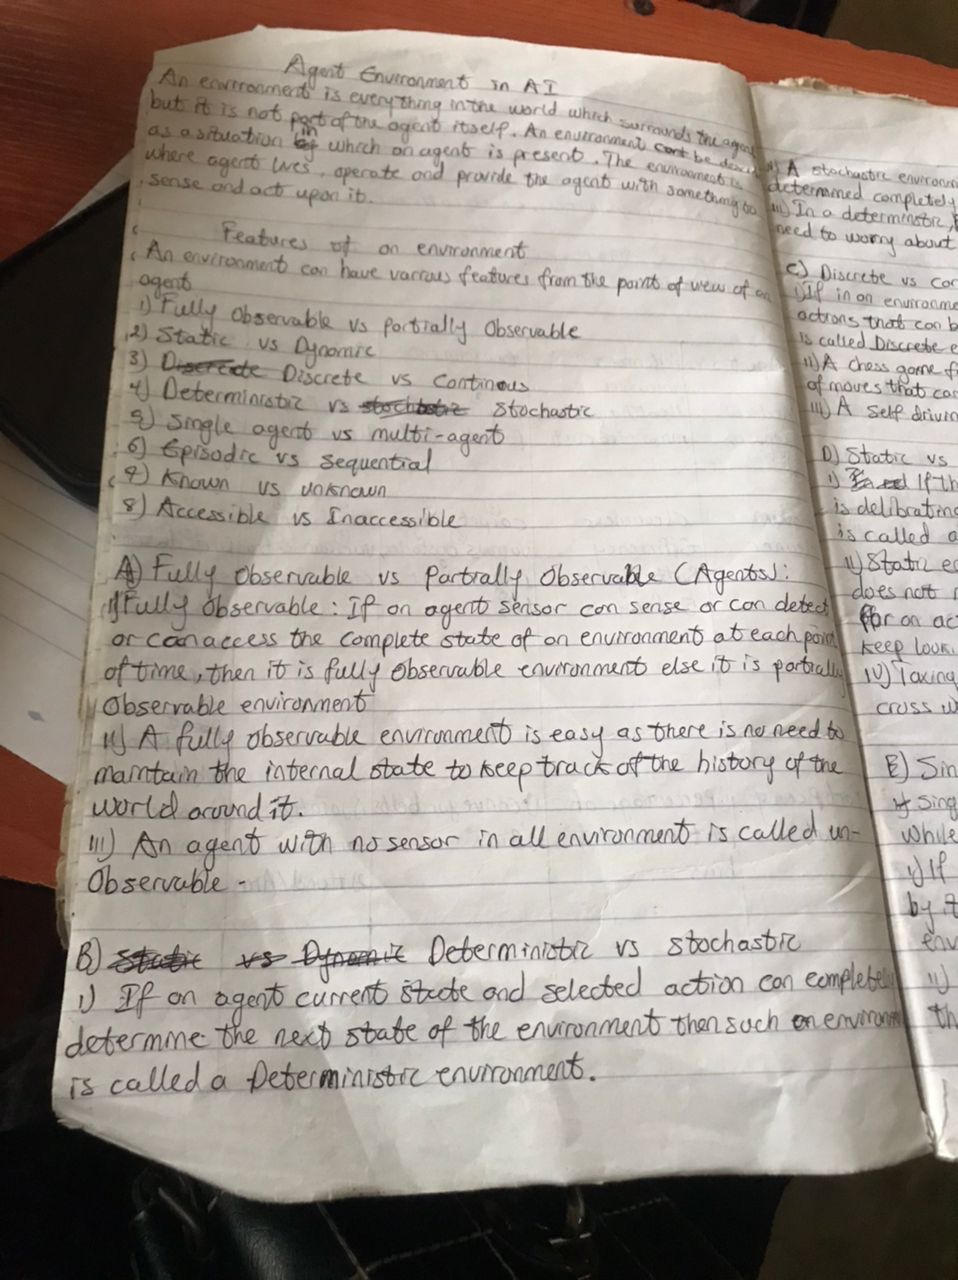 Agent Environment in AI
An environment is everything in the world which surrounds the agent
but it is not part of the agent itself. An environment can't be
as a situation in which an agent is present. The environment is
where agent lives, operate and provide the agent with something to
sense and act upon it.
Features of an environment
An environment can have various features from the point of view of an
agent
1) Fully Observable vs partially Observable
2) Static vs Dynamic
3) Discrete vs Continous
4) Deterministic vs Stochastic
5) Single agent vs multi-agent
6) Episodic vs Sequential
7) Known vs unknown
8) Accessible vs Inaccessible
A) Fully Observable vs Partially Observable (Agents):
i) Fully Observable: If an agent sensor can sense or can detect
or can access the complete state of an environment at each point
of time, then it is fully Observable environment else it is partially
Observable environment
ii) A fully observable environment is easy as there is no need to
maintain the internal state to keep track of the history of the
world around it.
iii) An agent with no sensor in all environment is called un-
Observable -
B) Deterministic vs stochastic
i) If an agent current state and selected action can completely
determine the next state of the environment then such an environment
is called a Deterministic environment.
A stochastic
determined completely
iii) In a deterministic,
need to worry about
C) Discrete vs
i) If in an
actions that can
is called Discrete
ii) A chess game
of moves that
iii) A Self
D) Static vs
i) If
is delibrating
is called
ii) Static
does not
for an
keep
IV) Taxing
cross
E)
while
i) If
by
ii)